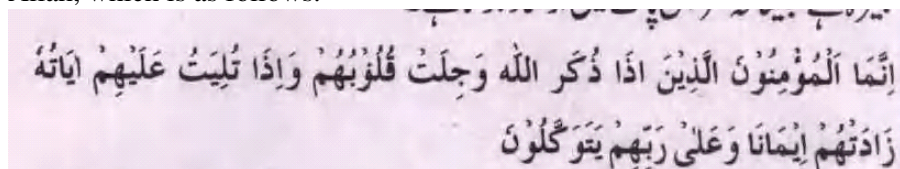 اِنَّمَا اَلْمُؤْمِنُوْنَ الَّذِيْنَ اذَا ذُكَر اللّٰه وَجِلَتْ قُلُوْبُهُمْ وَاِذَا تُلِيَتُ عَلَيْهِمْ ايَاتُهُ
زَادَتْهُمْ اِيْمَانَا وَعَلٰى رَبِّهِمْ يَتَوَكَّلُوْنَ